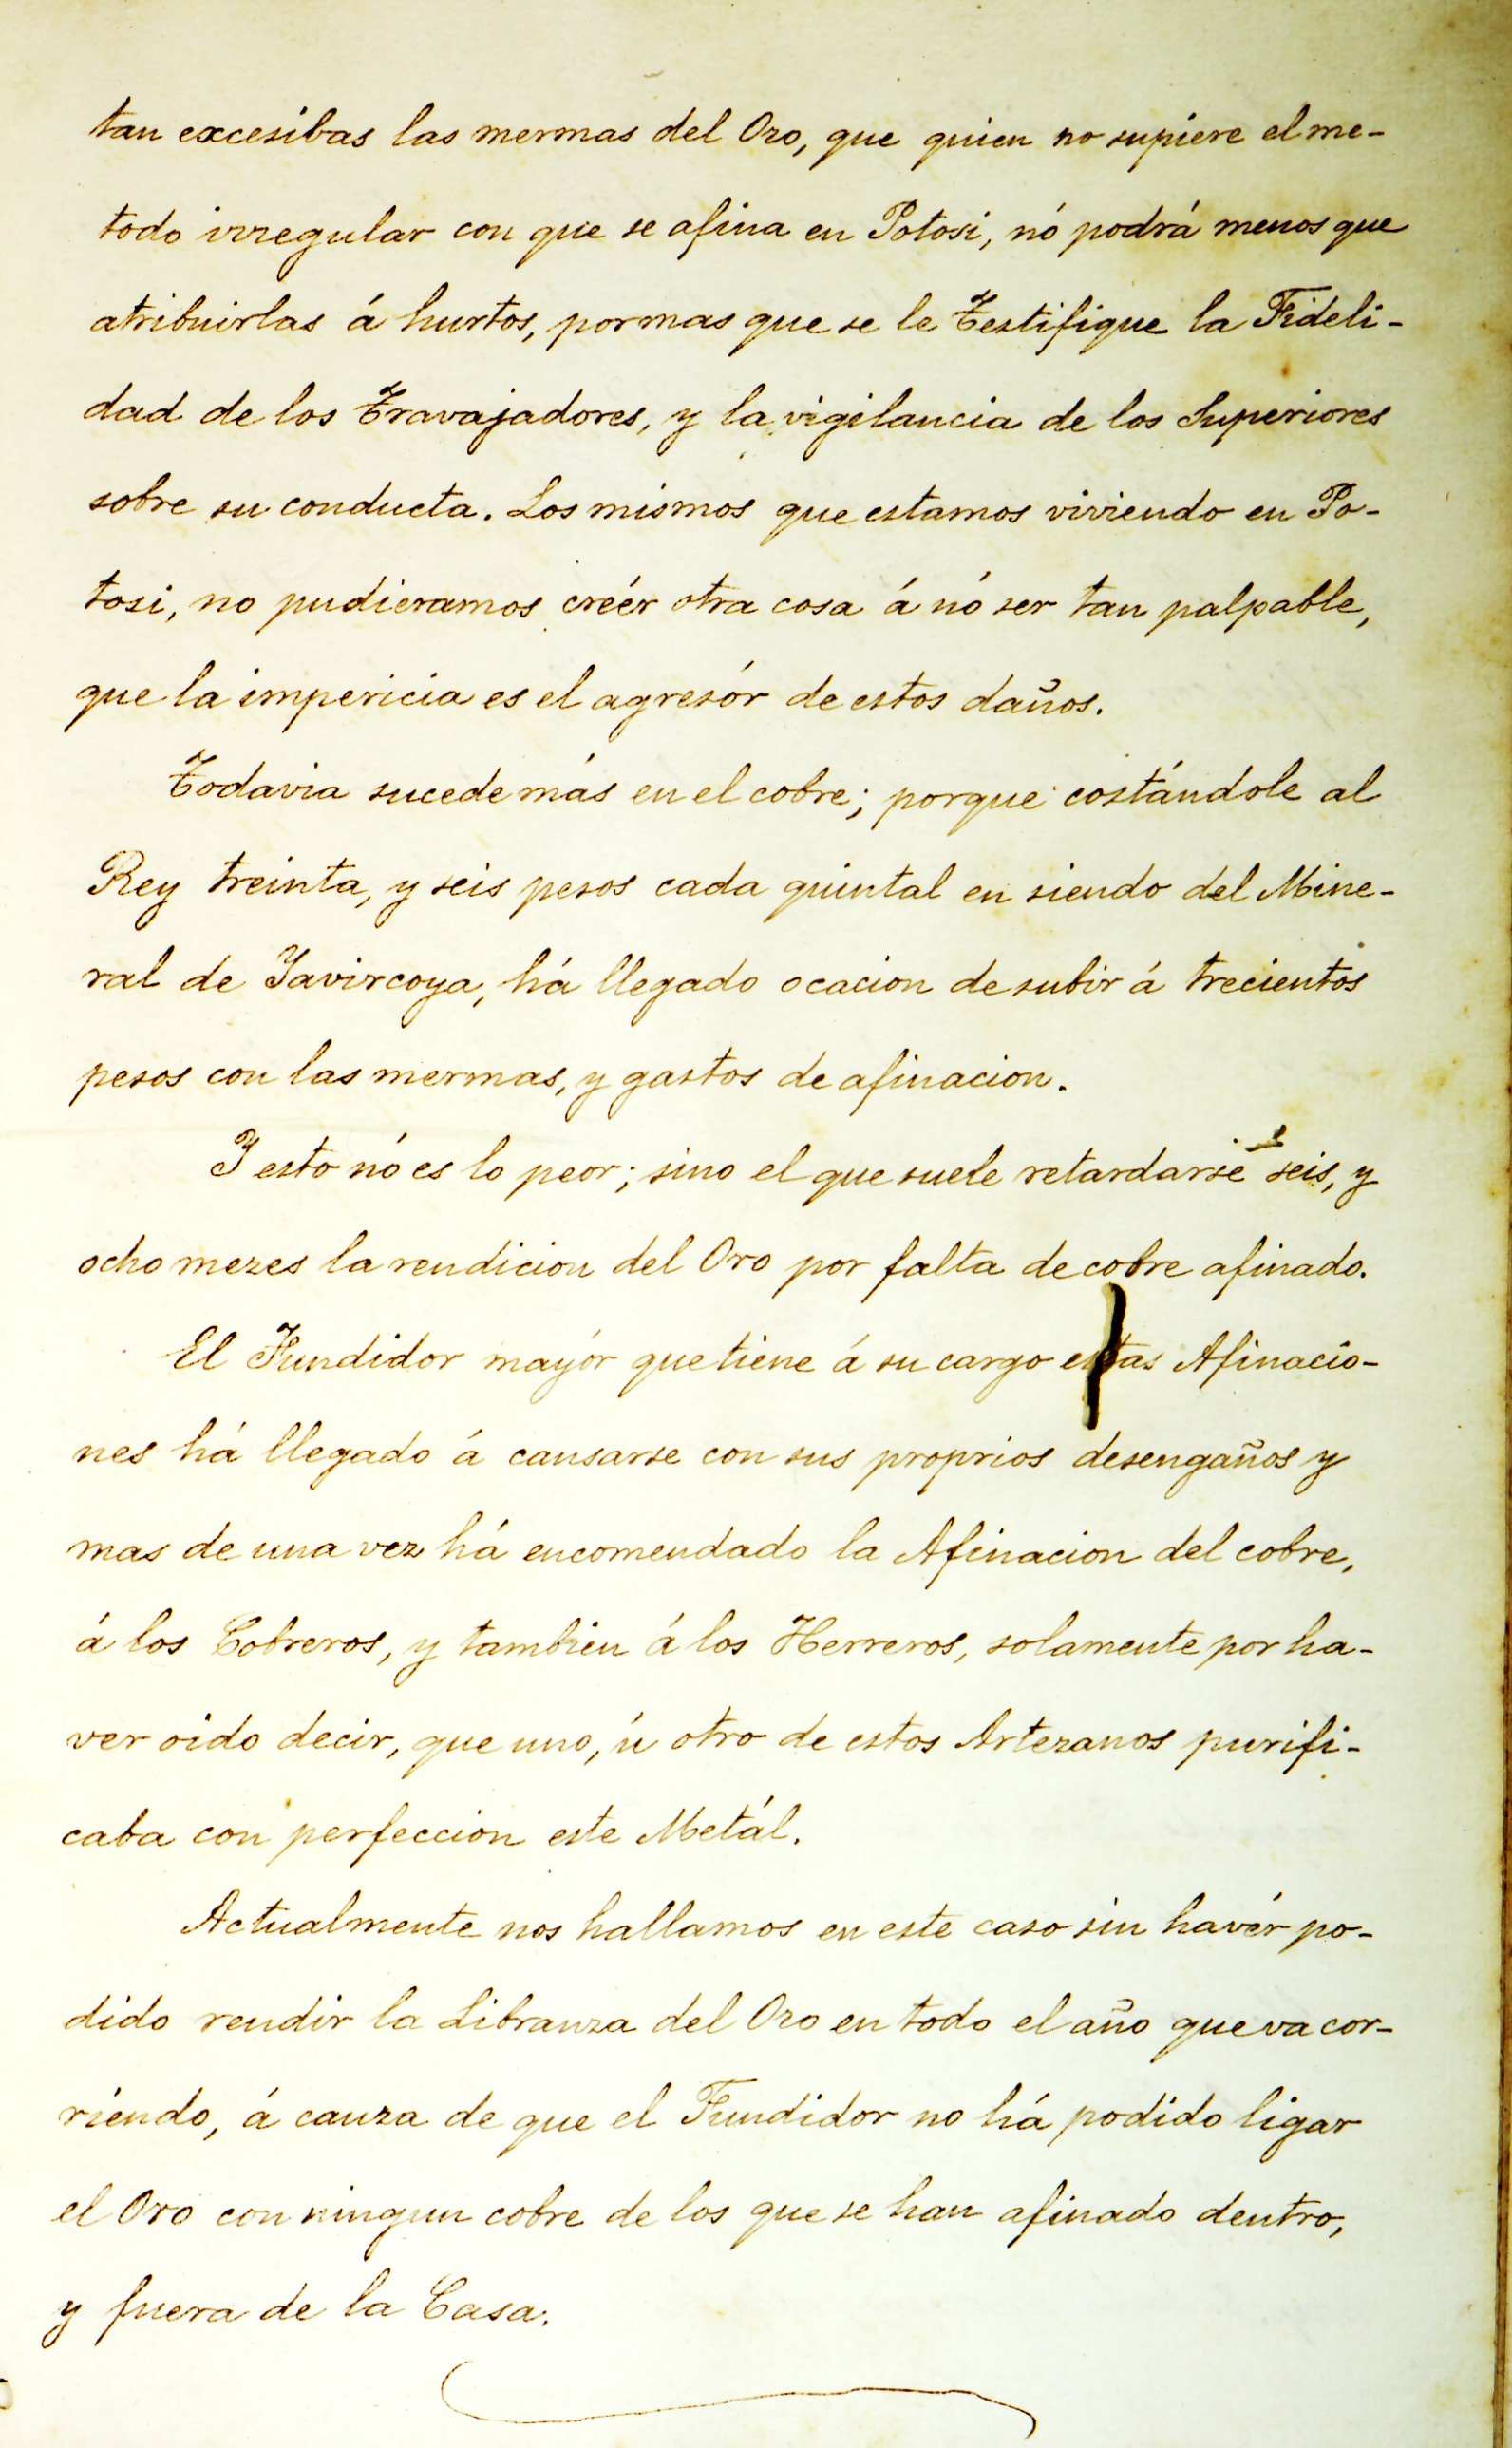 tan excesibas las mermas del Oro, que quien no supiere el me-
todo irregular con que se afina en Potosi, nó podrá menos que
atribuirlas á hurtos, por mas que se le Testifique la Fideli-
dad de los Travajadores, y la vigilancia de los Superiores
sobre su conducta. Los mismos que estamos viviendo en Po-
tosi, no pudieramos creér otra cosa á nó ser tan palpable,
que la impericia es el agresór de estos daños.
Todavia sucede más en el cobre; porque costándole al
Rey treinta, y seis pesos cada quintal en siendo del Mine-
ral de Yavircoya, há llegado ocacion de subir á trecientos
pesos con las mermas, y gastos de afinacion.
Y esto nó es lo peor; sino el que suele retardarse seis, y
ocho mezes la rendicion del Oro por falta de cobre afinado.
El Fundidor mayór que tiene á su cargo estas Afinacio-
nes há llegado á cansarse con sus proprios desengaños y
mas de una vez há encomendado la Afinacion del cobre,
á los Cobreros, y tambien á los Herreros, solamente por ha-
ver oido decir, que uno, ú otro de estos Artezanos purifi-
caba con perfeccion este Metál.
Actualmente nos hallamos en este caso sin havér po-
dido rendir la Libranza del Oro en todo el año que va cor-
riendo, á cauza de que el Fundidor no há podido ligar
el Oro con ningun cobre de los que se han afinado dentro,
y fuera de la Casa.